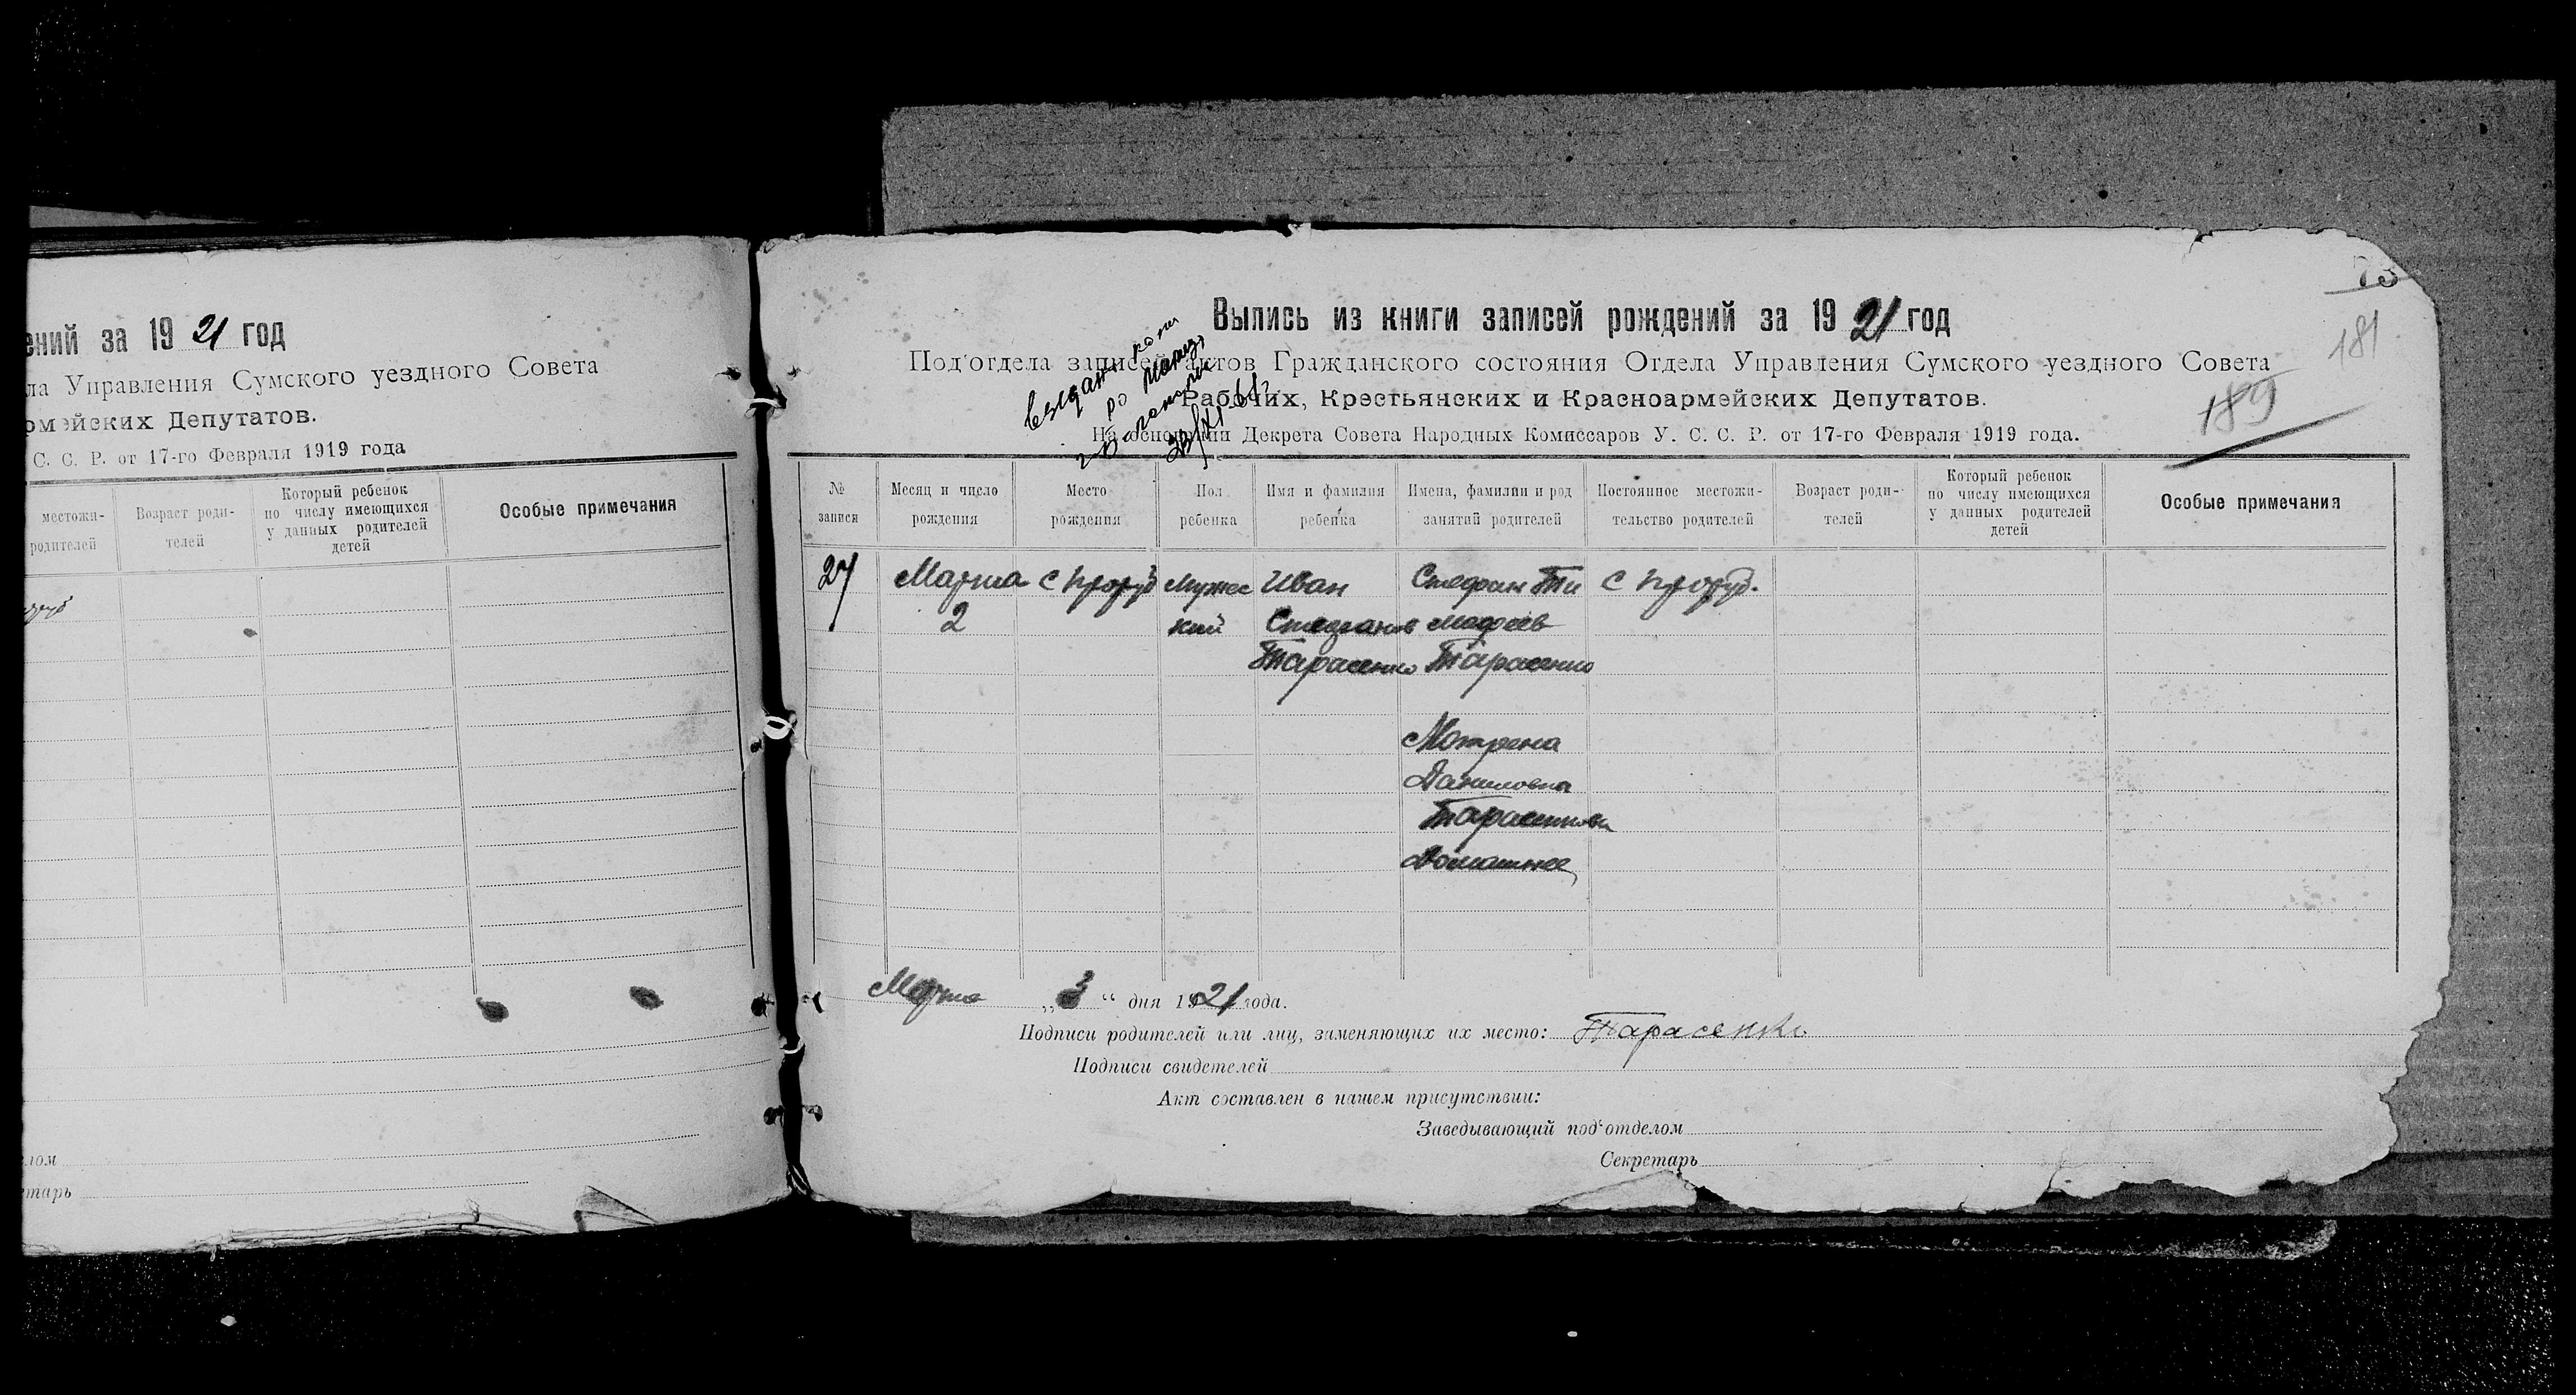 ений за 19 21 год
ла Управления Сумского уездного Совета
рмейских Депутатов.
С. С. Р. от 17-го Февраля 1919 года
местожи-
родителей
Возраст роди-
телей
Который ребенок
по числу имеющихся
у данных родителей
детей
Особые примечания
елом
етарь
73
181
189
Выпись из книги записей рождений за 19 21 год
Под'отдела записей актов Гражданского состояния Отдела Управления Сумского уездного Совета
Рабочих, Крестьянских и Красноармейских Депутатов.
На основании Декрета Совета Народных Комиссаров У. С. С. Р. от 17-го Февраля 1919 года.
№
записи
Месяц и число
рождения
Место
рождения
Пол
ребенка
Имя и фамилия
ребенка
Имена, фамилии и род
занятий родителей
Постоянное местожи-
тельство родителей
Возраст роди-
телей
Который ребенок
по числу имеющихся
у данных родителей
детей
Особые примечания
27
Марта
2
с Проруб
Мужес
кий
Иван
Стефанов
Тарасенко
Стефан Ти
мофеев
Тарасенко
Мокрена
Даниловна
Тарасенкова
Домашнее
с Проруб.
Марта „3“ дня 1921 года.
Подписи родителей или лиц, заменяющих их место: Тарасенко
Подписи свидетелей
Акт составлен в нашем присутствии:
Заведывающий под'отделом
Секретарь